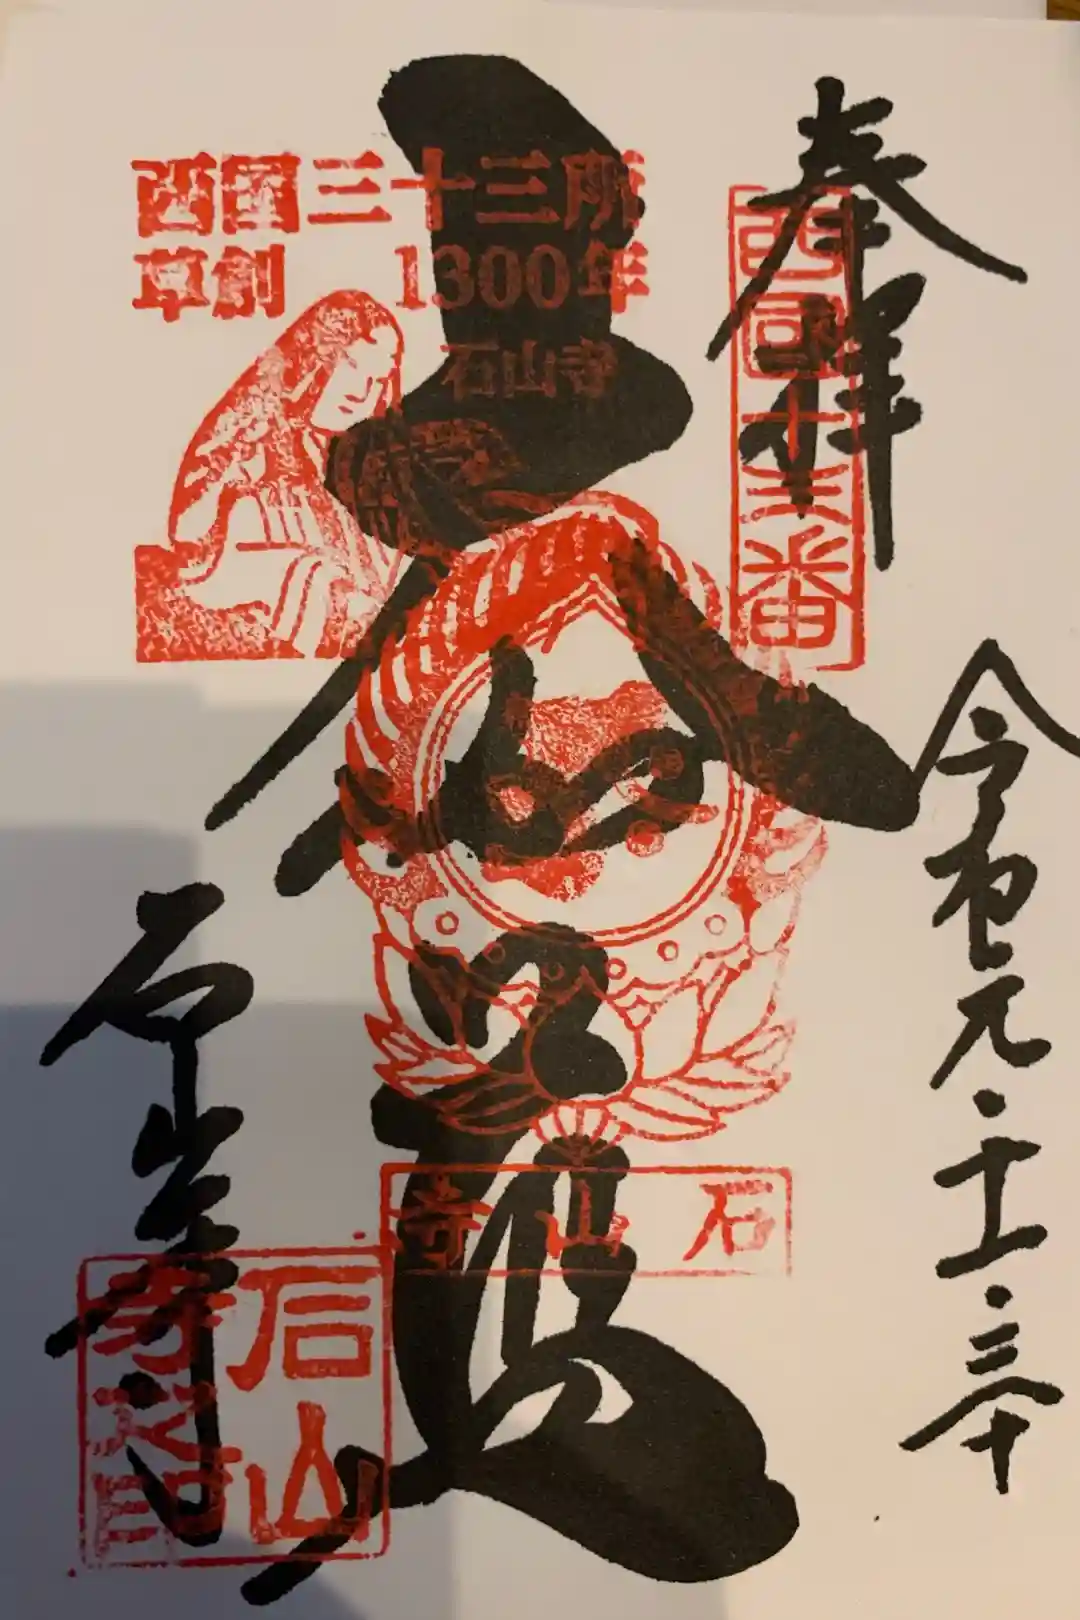 奉拝
西国十三番
令和元・・三十
西国三十三所
草創 1300年
石山寺
大伽藍
石山寺
石山寺
石山寺之印